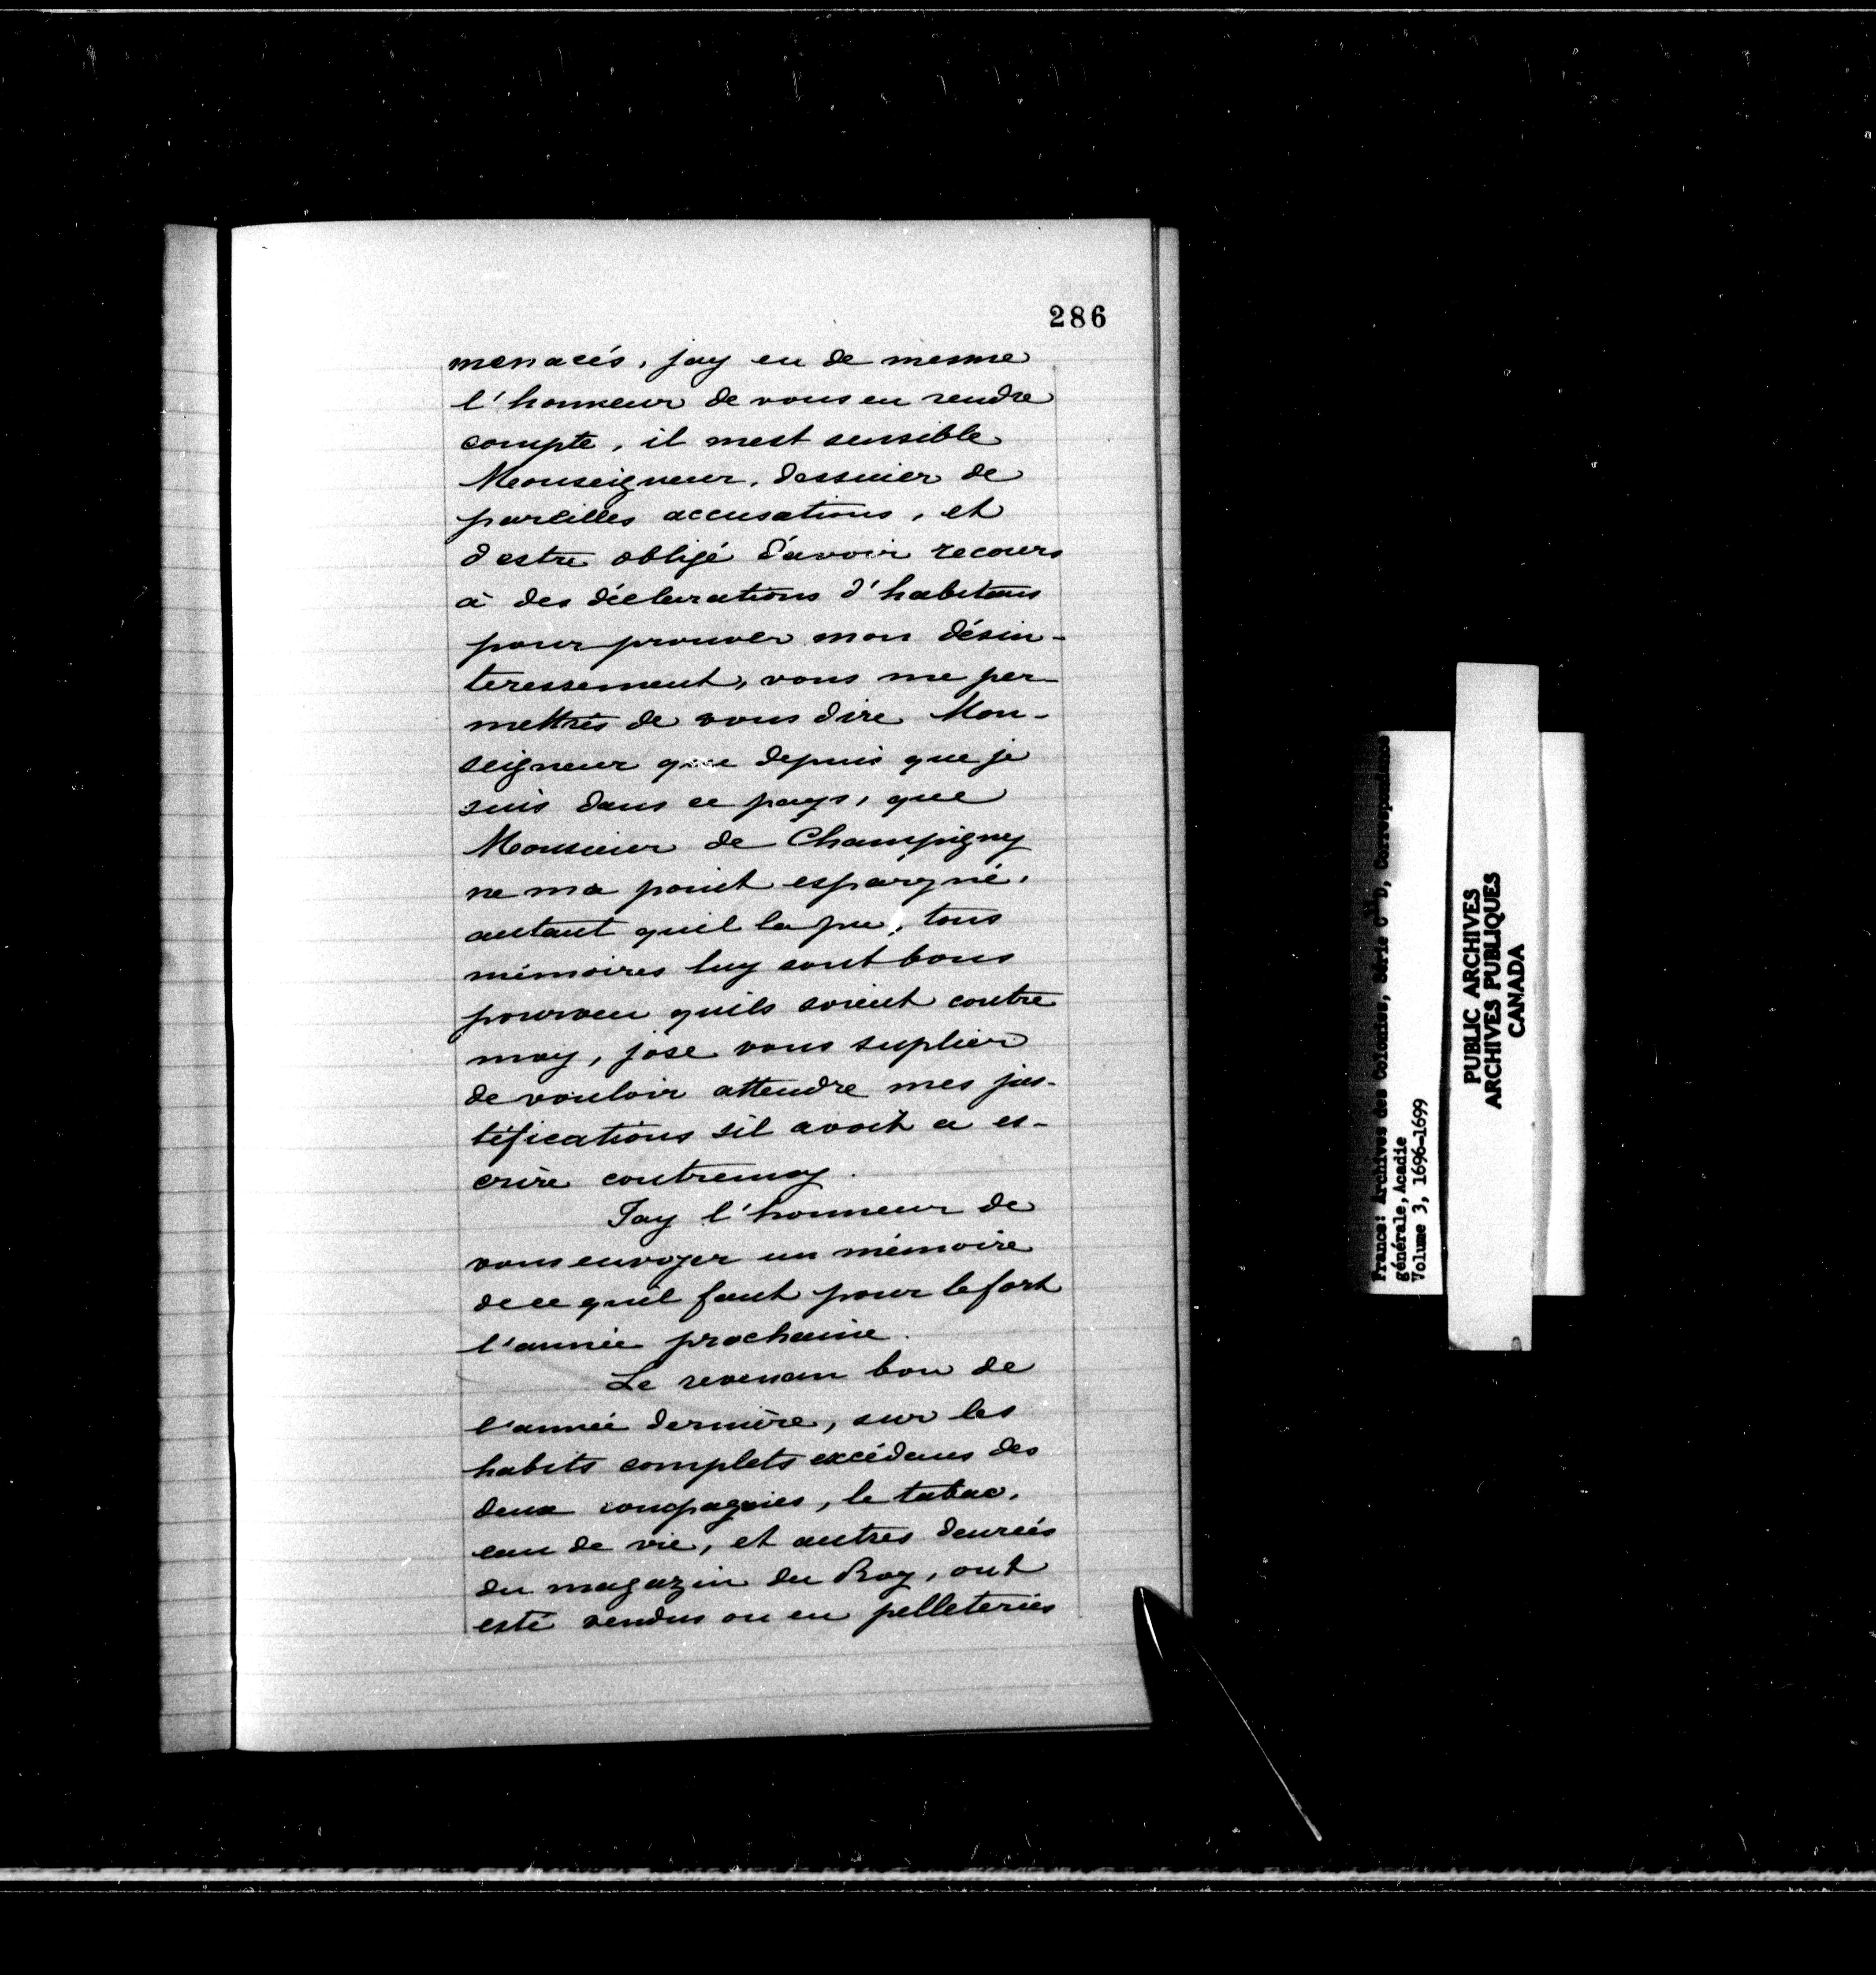 286
menacés, jay eu de mesme
l'honneur de vous en rendre
compte, il mest sensible
Monseigneur, dessuier de
pareilles accusations, et
destre obligé d'avoir recours
à des déclarations d'habitans
pour prouver mon désin-
teressement, vous me per-
mettrés de vous dire Mon-
seigneur que depuis que je
suis dans ce pays, que
Monsieur de Champigny
ne ma point espargné,
autant quil la pu, tous
mémoires luy sont bons
pourveu quils soient contre
moy, jose vous suplier
de vouloir attendre mes jus-
tifications sil avoit a es-
crire contremoy.
Jay l'honneur de
vous envoyer un mémoire
de ce quil faut pour le fort
l'année prochaine.
Le revenan bon de
l'année dernière, sur les
habits complets excédens des
deux compagnies, le tabac,
eau de vie, et autres denrées
du magazin du Roy, ont
esté vendus ou en pelleteries
France: Archives des Colonies, Série C11D, Correspondance
générale, Acadie
Volume 3, 1696-1699
PUBLIC ARCHIVES
ARCHIVES PUBLIQUES
CANADA